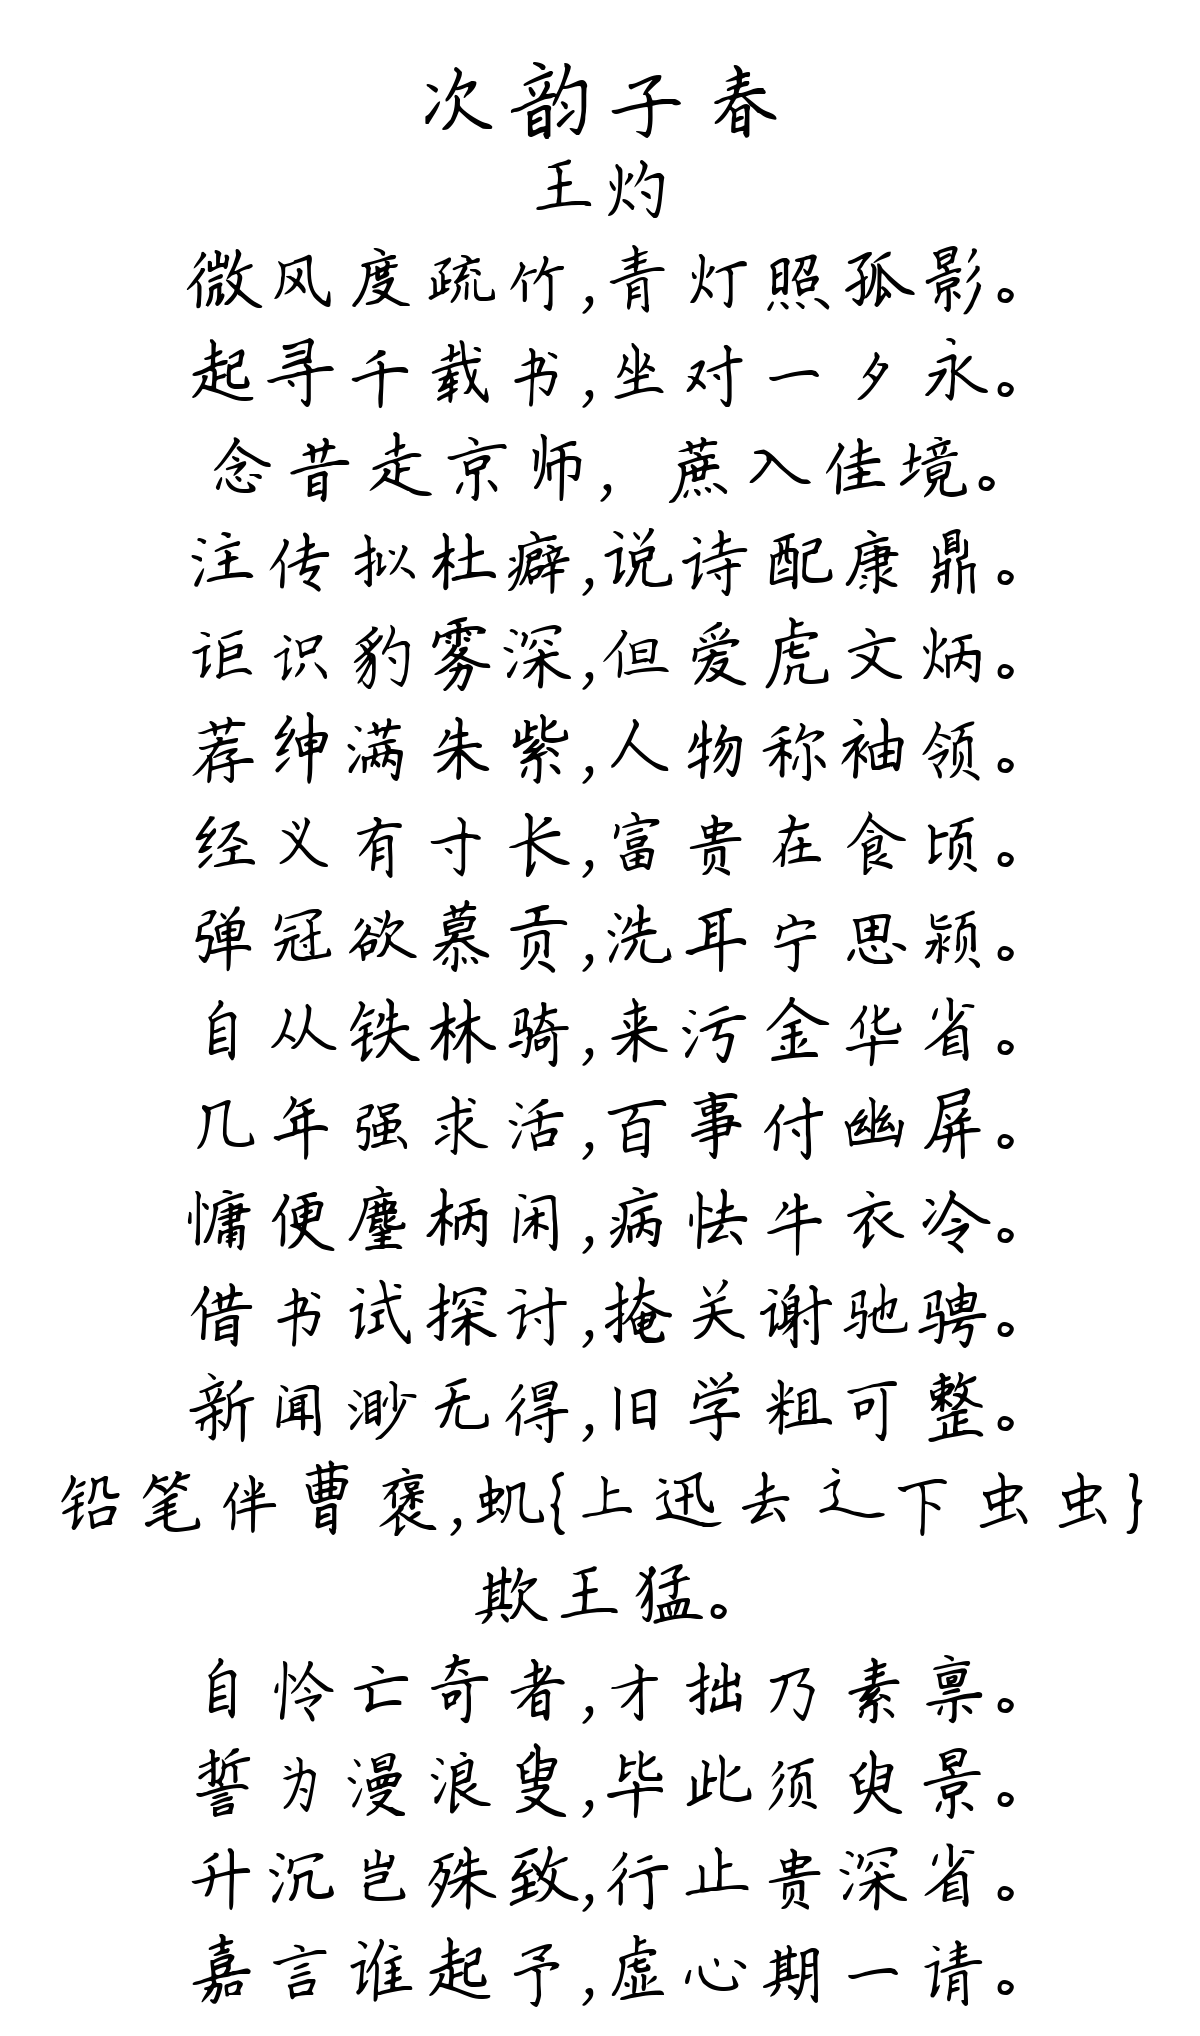 次韵子春
王灼
微风度疏竹,青灯照孤影。
起寻千载书,坐对一夕永。
念昔走京师，蔗入佳境。
注传拟杜癖,说诗配康鼎。
讵识豹雾深,但爱虎文炳。
荐绅满朱紫,人物称袖领。
经义有寸长,富贵在食顷。
弹冠欲慕贡,洗耳宁思颍。
自从铁林骑,来污金华省。
几年强求活,百事付幽屏。
慵便麈柄闲,病怯牛衣冷。
借书试探讨,掩关谢驰骋。
新闻渺无得,旧学粗可整。
铅笔伴曹褒,虮{上迅去辶下虫虫}
欺王猛。
自怜亡奇者,才拙乃素禀。
誓为漫浪叟,毕此须臾景。
升沉岂殊致,行止贵深省。
嘉言谁起予,虚心期一请。